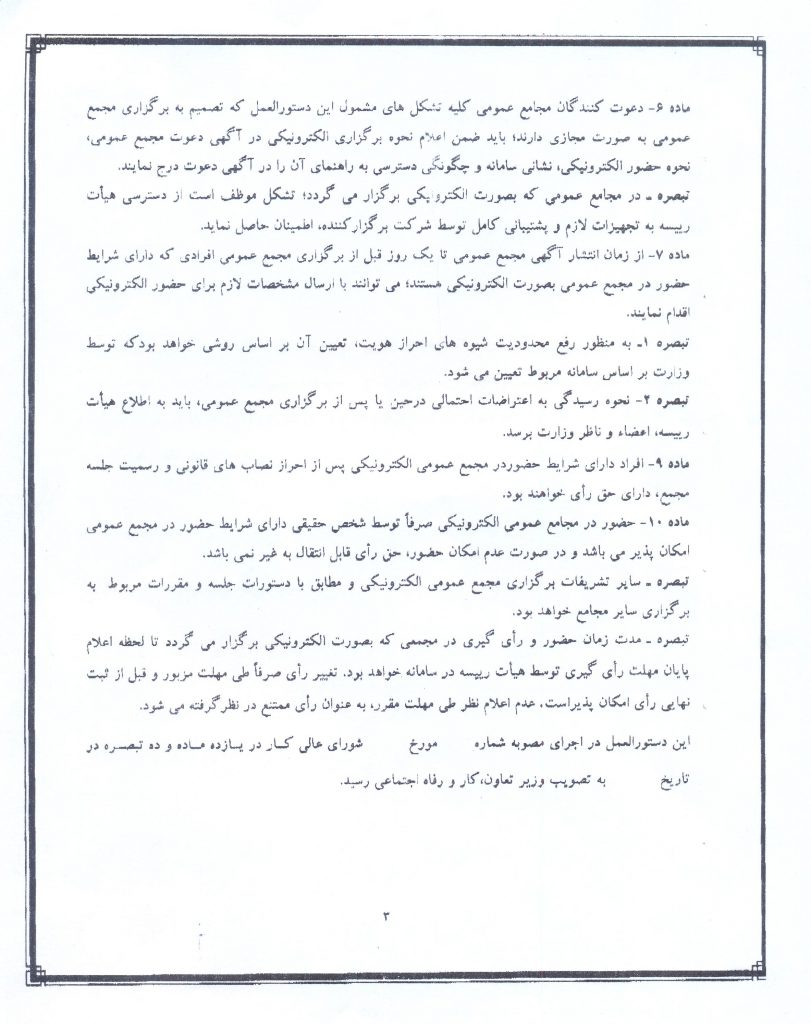 ماده ۶- دعوت کنندگان مجامع عمومی کلیه تشکل های مشمول این دستورالعمل که تصمیم به برگزاری مجمع
عمومی به صورت مجازی دارند؛ باید ضمن اعلام نحوه برگزاری الکترونیکی در آگهی دعوت مجمع عمومی،
نحوه حضور الکترونیکی، نشانی سامانه و چگونگی دسترسی به راهنمای آن را در آگهی دعوت درج نمایند.
تبصره ـ در مجامع عمومی که بصورت الکترونیکی برگزار می گردد؛ تشکل موظف است از دسترسی هیأت
رییسه به تجهیزات لازم و پشتیبانی کامل توسط شرکت برگزارکننده، اطمینان حاصل نماید.
ماده ۷- از زمان انتشار آگهی مجمع عمومی تا یک روز قبل از برگزاری مجمع عمومی افرادی که دارای شرایط
حضور در مجمع عمومی بصورت الکترونیکی هستند؛ می توانند با ارسال مشخصات لازم برای حضور الکترونیکی
اقدام نمایند.
تبصره ۱ـ به منظور رفع محدودیت شیوه های احراز هویت، تعیین آن بر اساس روشی خواهد بودکه توسط
وزارت بر اساس سامانه مربوط تعیین می شود.
تبصره ۲- نحوه رسیدگی به اعتراضات احتمالی درحین یا پس از برگزاری مجمع عمومی، باید به اطلاع هیأت
رییسه، اعضاء و ناظر وزارت برسد.
ماده ۹- افراد دارای شرایط حضوردر مجمع عمومی الکترونیکی پس از احراز نصاب های قانونی و رسمیت جلسه
مجمع، دارای حق رأی خواهند بود.
ماده ۱۰- حضور در مجامع عمومی الکترونیکی صرفاً توسط شخص حقیقی دارای شرایط حضور در مجمع عمومی
امکان پذیر می باشد و در صورت عدم امکان حضور، حق رأی قابل انتقال به غیر نمی باشد.
تبصره ـ سایر تشریفات برگزاری مجمع عمومی الکترونیکی و مطابق با دستورات جلسه و مقررات مربوط به
برگزاری سایر مجامع خواهد بود.
تبصره ـ مدت زمان حضور و رأی گیری در مجمعی که بصورت الکترونیکی برگزار می گردد تا لحظه اعلام
پایان مهلت رأی گیری توسط هیأت رییسه در سامانه خواهد بود. تغییر رأی صرفاً طی مهلت مزبور و قبل از ثبت
نهایی رأی امکان پذیراست. عدم اعلام نظر طی مهلت مقرر، به عنوان رأی ممتنع در نظرگرفته می شود.
این دستورالعمل در اجرای مصوبه شماره مورخ شورای عالی کار در یازده ماده و ده تبصره در
تاریخ به تصویب وزیر تعاون،کار و رفاه اجتماعی رسید.
۳